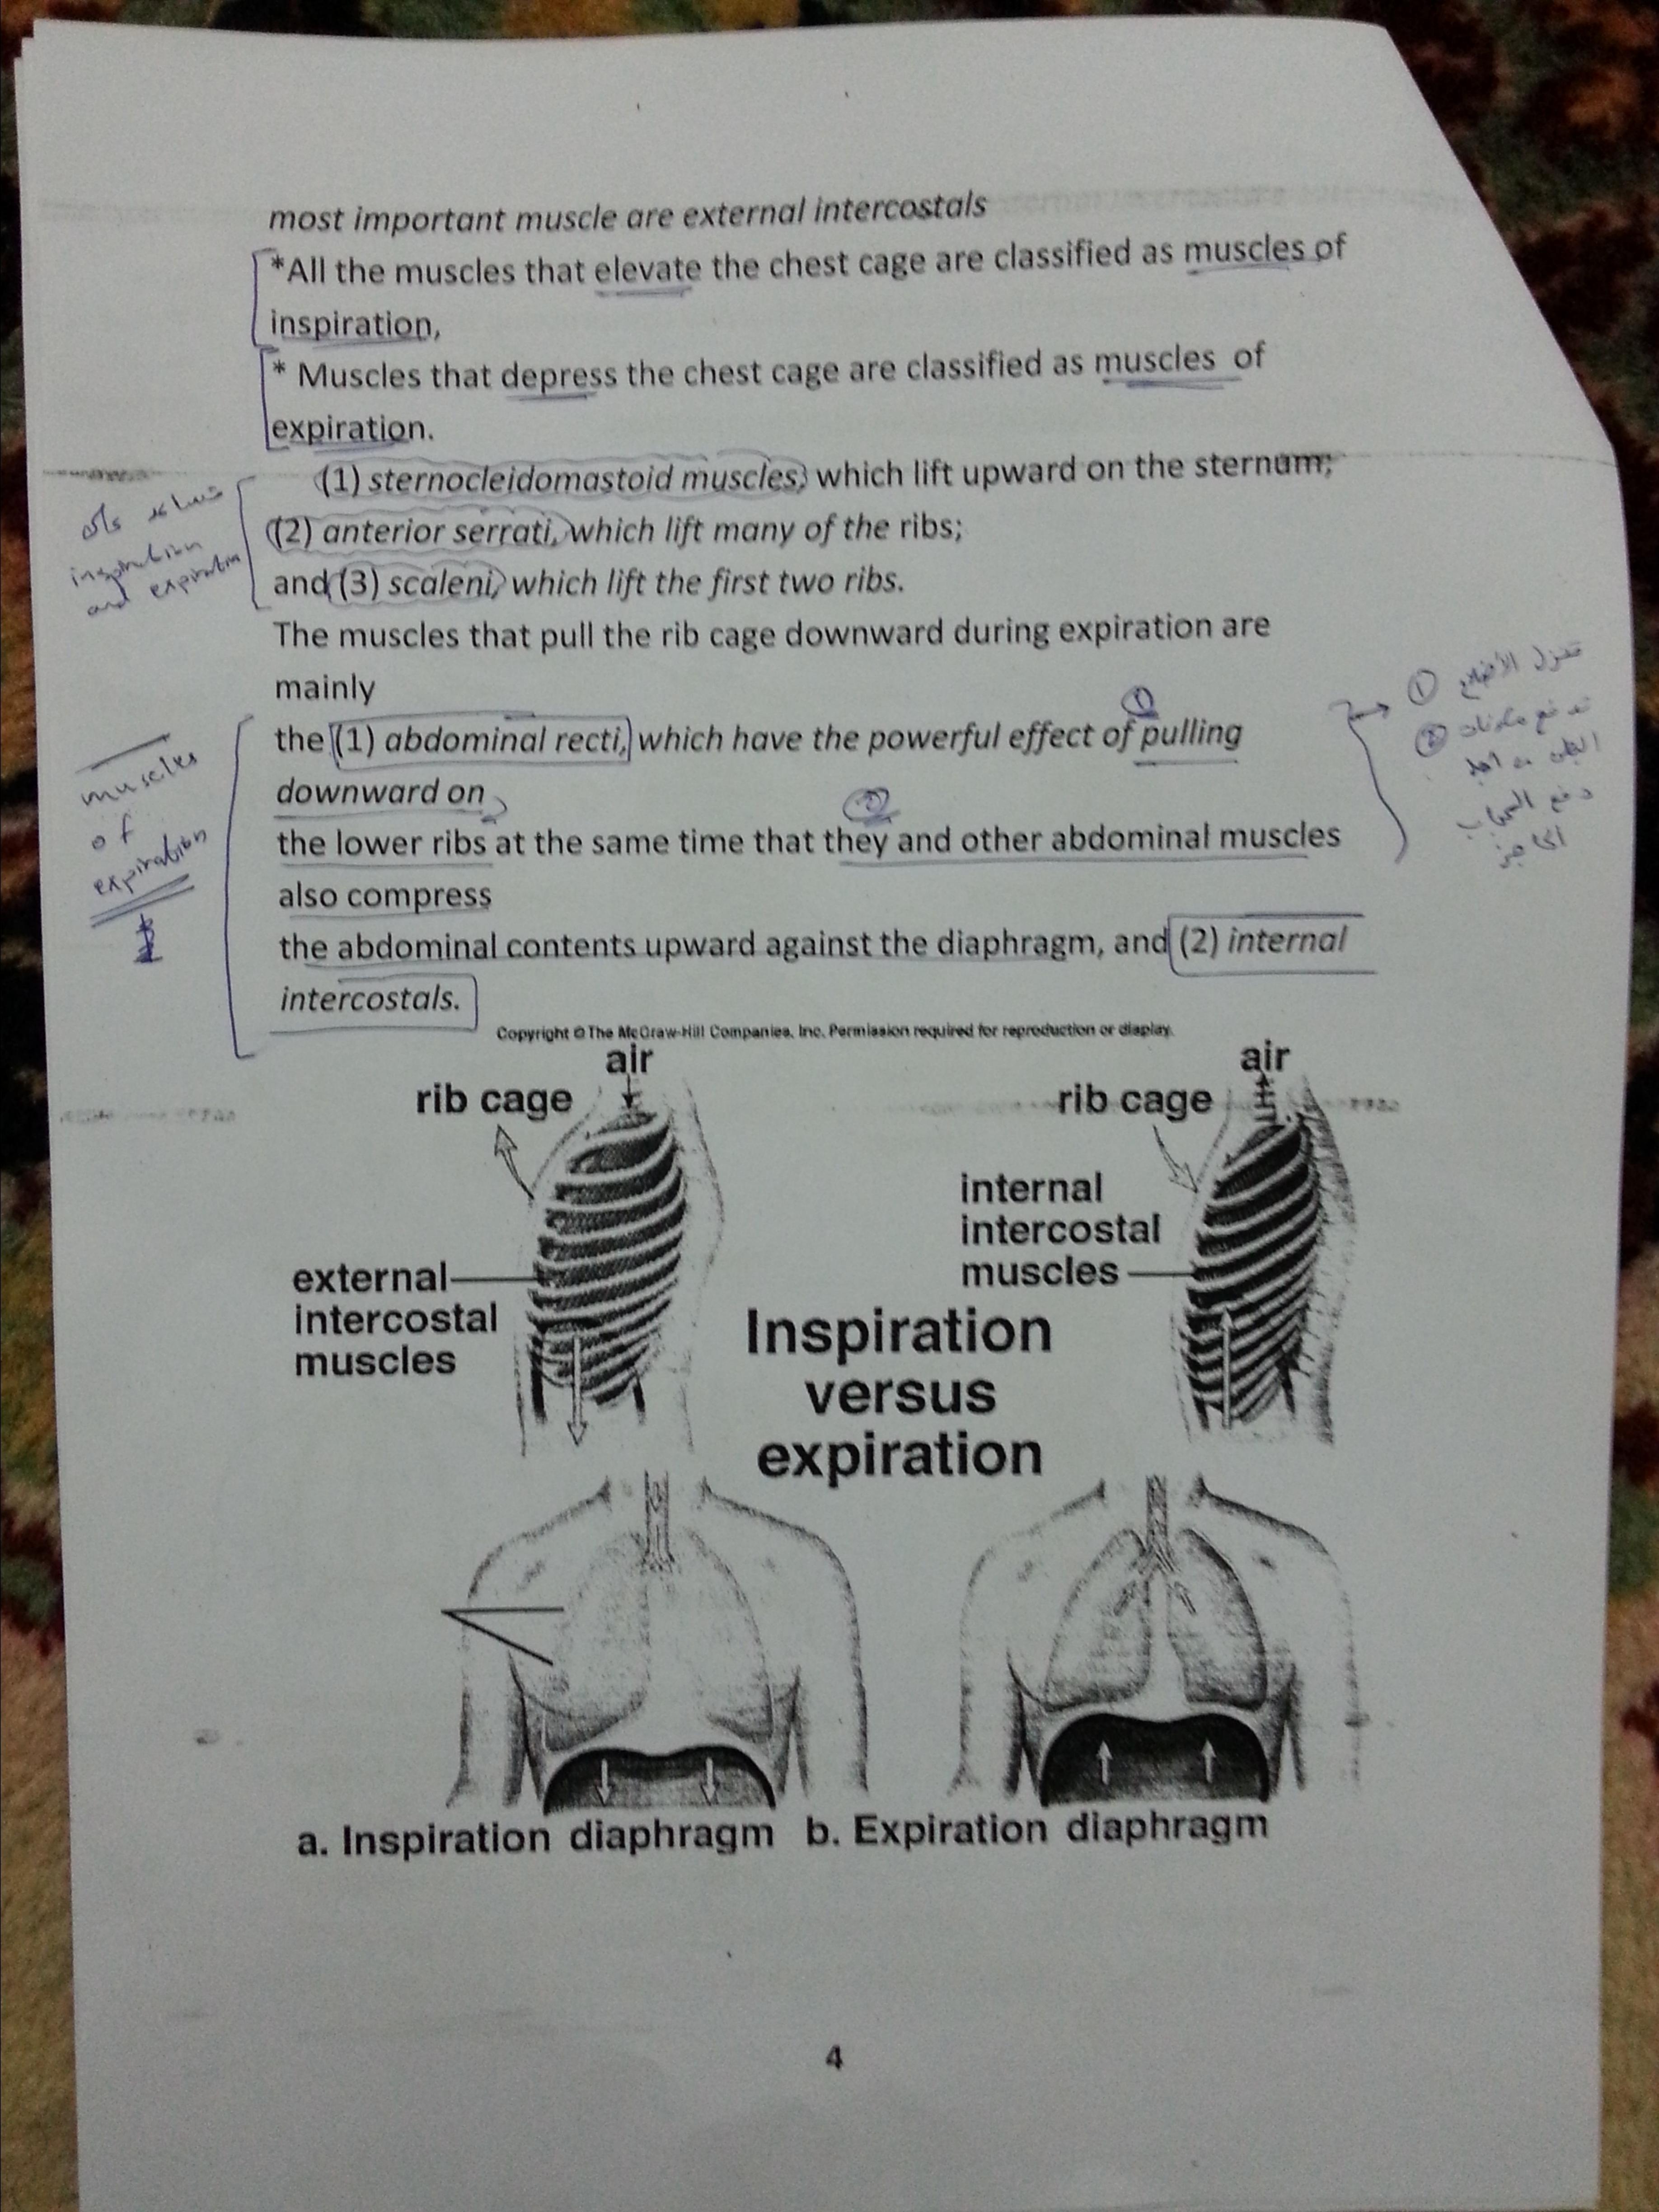 most important muscle are external intercostals
*All the muscles that elevate the chest cage are classified as muscles of
inspiration,
* Muscles that depress the chest cage are classified as muscles of
expiration.
(1) sternocleidomastoid muscles, which lift upward on the sternum;
(2) anterior serrati, which lift many of the ribs;
and (3) scaleni, which lift the first two ribs.
تساعد على
inspiration
and expiration
The muscles that pull the rib cage downward during expiration are
mainly
the (1) abdominal recti, which have the powerful effect of pulling
downward on
the lower ribs at the same time that they and other abdominal muscles
also compress
the abdominal contents upward against the diaphragm, and (2) internal
intercostals.
muscles
of
expiration
① تنزل الأضلاع
② تدفع مكونات
البطن من اجل
دفع الحجاب
الحاجز
①
②
Copyright © The McGraw-Hill Companies, Inc. Permission required for reproduction or display.
air
rib cage
external
intercostal
muscles
air
rib cage
internal
intercostal
muscles
Inspiration
versus
expiration
a. Inspiration diaphragm
b. Expiration diaphragm
4